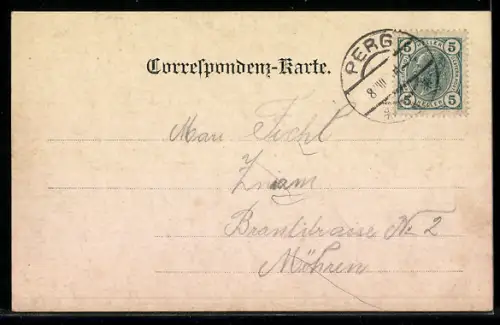 Correspondenz-Karte.
PERG
8 VII
5 5
HELLER
5 5
Znaim
Brantstrasse Nr 2
Mähren